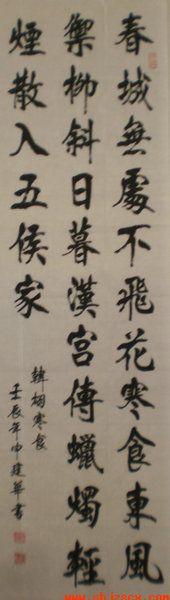 春城無處不飛花寒食東風
禦柳斜日暮漢宮傳蠟燭輕
煙散入五侯家
韓翃寒食
壬辰年申建華書